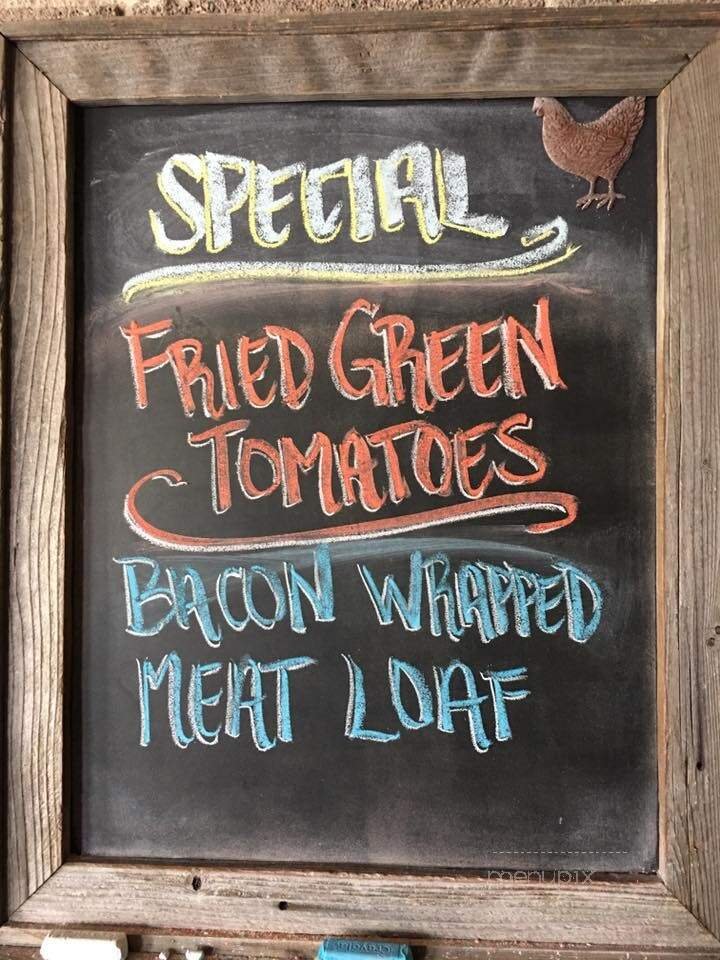 SPECIAL
FRIED GREEN
TOMATOES
BACON WRAPPED
MEAT LOAF
menupix
CRAYOLA